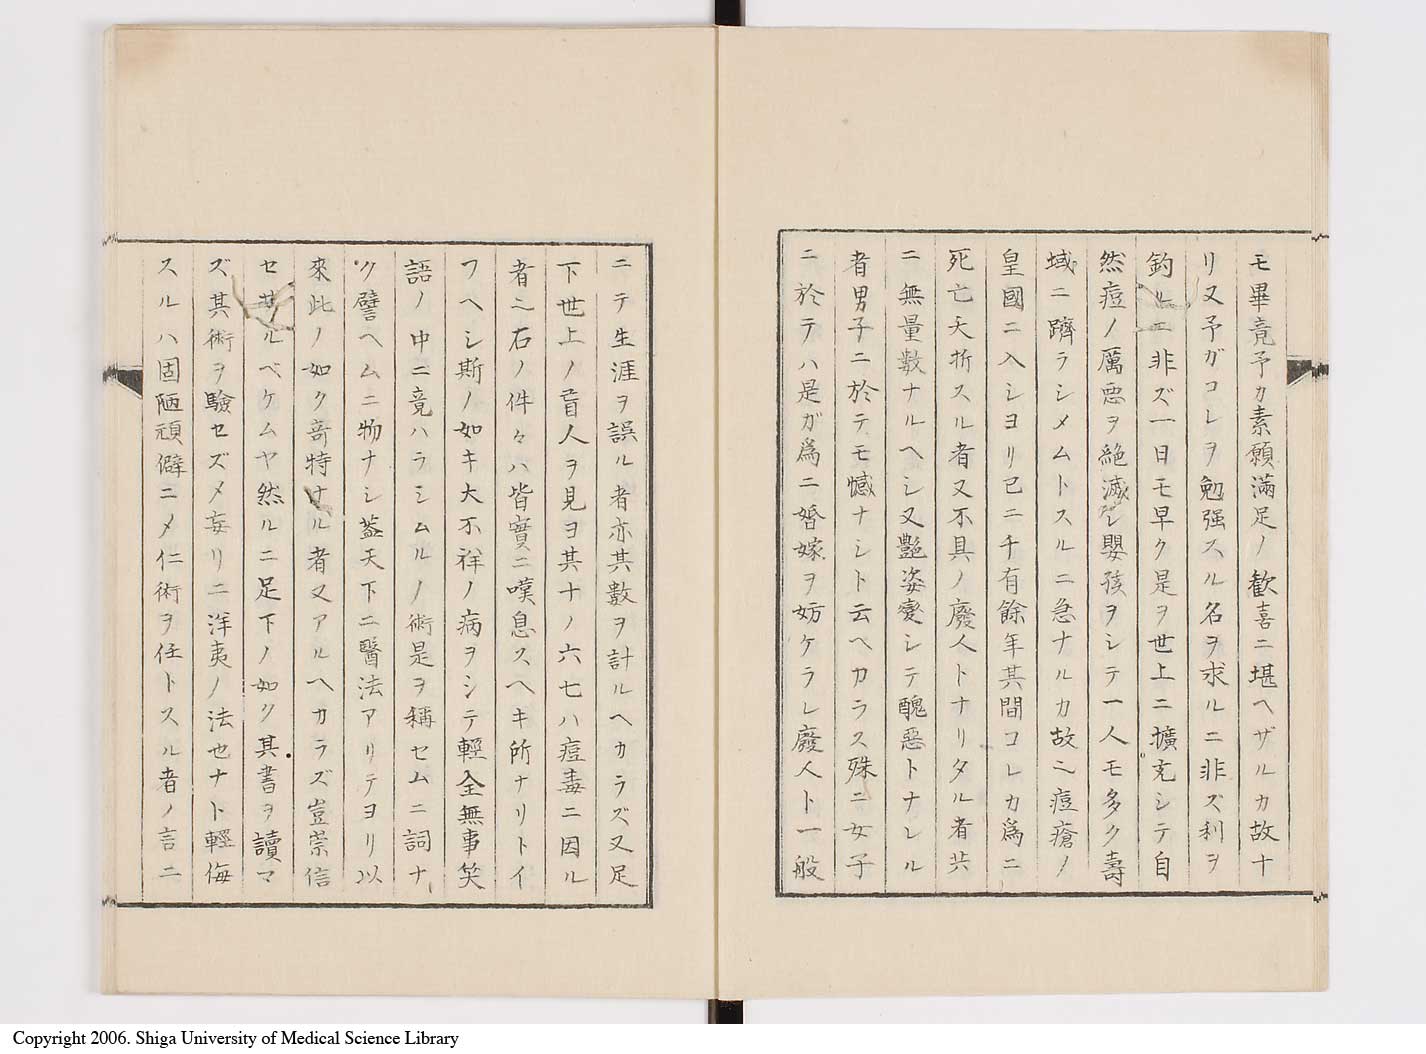 モ畢竟予カ素願滿足ノ歓喜ニ堪ヘザルカ故ナ
リ又予ガコレヲ勉强スル名ヲ求ルニ非ズ利ヲ
釣ルニ非ズ一日モ早ク是ヲ世上ニ擴充シテ自
然痘ノ厲悪ヲ絶滅シ嬰孩ヲシテ一人モ多ク壽
域ニ躋ラシメムトスルニ急ナルカ故ニ痘瘡ノ
皇國ニ入シヨリ已ニ千有餘年其間コレカ爲ニ
死亡夭折スル者又不具ノ廢人トナリタル者共
ニ無量數ナルヘシ又艶姿變シテ醜惡トナレル
者男子ニ於テモ憾ナシト云ヘカラス殊ニ女子
ニ於テハ是ガ爲ニ婚嫁ヲ妨ケラレ廢人ト一般
ニテ生涯ヲ誤ル者亦其數ヲ計ルヘカラズ又足
下世上ノ盲人ヲ見ヨ其十ノ六七ハ痘毒ニ因ル
者ニ右ノ件々ハ皆實ニ嘆息スヘキ所ナリトイ
フヘシ斯ノ如キ大不祥ノ病ヲシテ輕全無事笑
語ノ中ニ竟ハラシムルノ術是ヲ稱セムニ詞ナ
ク譬ヘムニ物ナシ蓋天下ニ醫法アリテヨリ以
來此ノ如ク奇特ナル者又アルヘカラズ豈崇信
セザルベケムヤ然ルニ足下ノ如ク其書ヲ讀マ
ズ其術ヲ驗セズメ妄リニ洋夷ノ法也ナト輕侮
スルハ固陋頑僻ニメ仁術ヲ任トスル者ノ言ニ
Copyright 2006. Shiga University of Medical Science Library